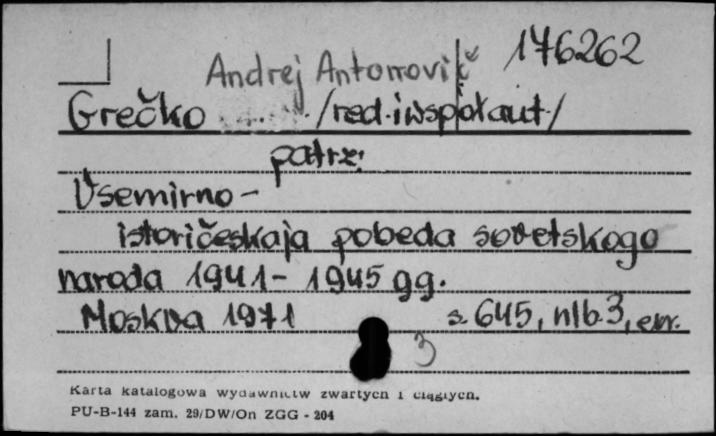 Andrej Antonovič 176262
Grečko /red. i współaut./
patrz:
Vsemirno-
istoričeskaja pobeda sovetskogo
naroda 1941-1945 gg.
Moskva 1971 s. 645, nlb. 3, err.
3
Karta katalogowa wydawnictw zwartych i ciągłych.
PU-B-144 zam. 29/DW/On ZGG - 204